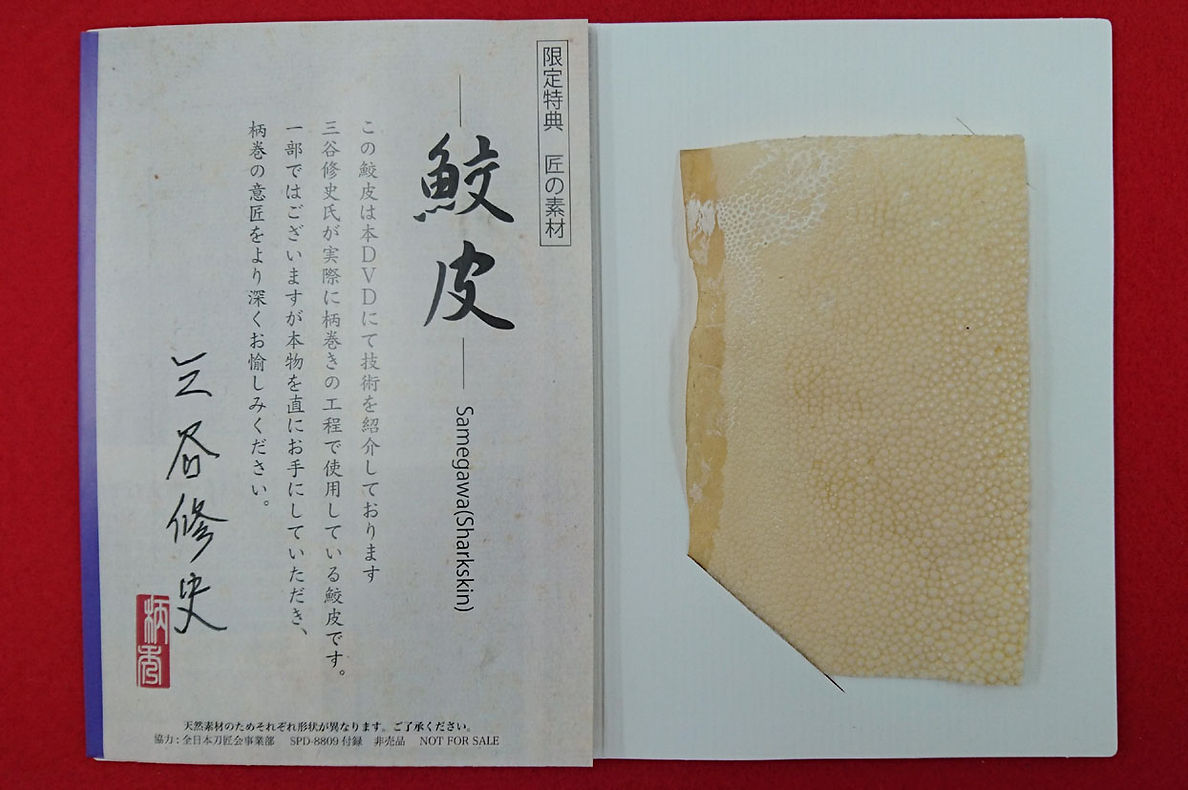 限定特典　匠の素材
鮫皮
Samegawa(Sharkskin)
この鮫皮は本DVDにて技術を紹介しております
三谷修史氏が実際に柄巻きの工程で使用している鮫皮です。
一部ではございますが本物を直にお手にしていただき、
柄巻の意匠をより深くお愉しみください。
三谷修史
柄秀
天然素材のためそれぞれ形状が異なります。ご了承ください。
協力：全日本刀匠会事業部　SPD-8809付録　非売品　NOT FOR SALE